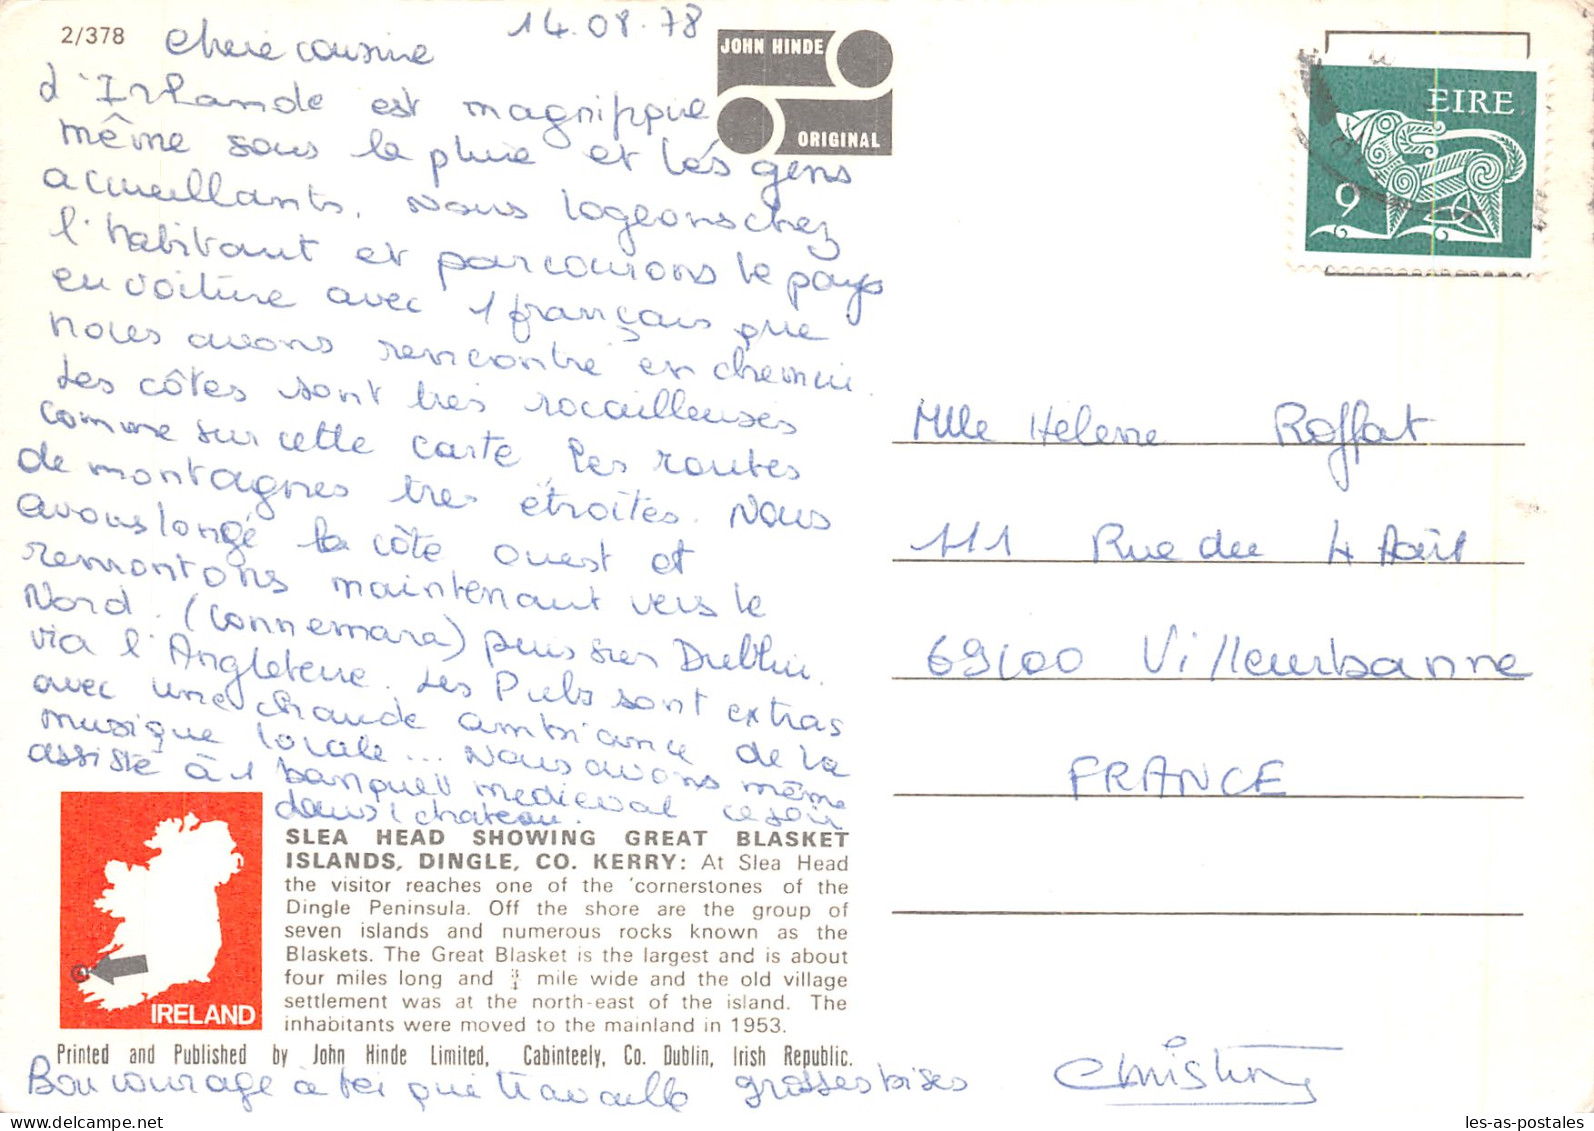 2/378
14.08.78
Chere cousine
JOHN HINDE
ORIGINAL
EIRE
9
d'Irlande est magnifique
même sous la pluie et les gens
accueillants. Nous logeons chez
l'habitant et parcourons le pays
en voiture avec 1 français que
nous avons rencontré en chemin
Les côtes sont très rocailleuses
comme sur cette carte, les routes
de montagnes tres étroites. Nous
avons longé la côte ouest et
remontons maintenant vers le
Nord. (Connemara) puis sur Dublin.
via l'Angleterre. Les Pubs sont extras
avec une chaude ambiance de la
musique locale... Nous avons même
assisté à 1 banquet medieval ce soir
dans 1 chateau.
Mlle Helene Roffat
111 Rue du 4 Août
69100 Villeurbanne
FRANCE
IRELAND
SLEA HEAD SHOWING GREAT BLASKET
ISLANDS, DINGLE, CO. KERRY: At Slea Head
the visitor reaches one of the 'cornerstones of the
Dingle Peninsula. Off the shore are the group of
seven islands and numerous rocks known as the
Blaskets. The Great Blasket is the largest and is about
four miles long and ¾ mile wide and the old village
settlement was at the north-east of the island. The
inhabitants were moved to the mainland in 1953.
Printed and Published by John Hinde Limited, Cabinteely, Co. Dublin, Irish Republic.
Bon courage à toi qui travaille grosses bises Christine
les-as-postales.com